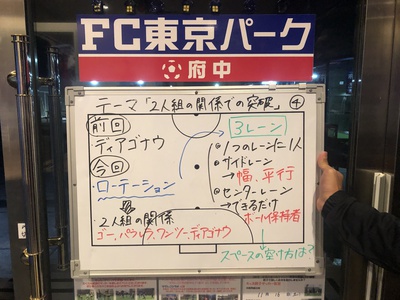 FC東京パーク
府中
テーマ「2人組の関係での突破」④
前回
ディアゴナウ
今回
・ローテーション
・2人組の関係
ゴー、パラレラ、ワンツー、ディアゴナウ
3レーン
◎1つのレーンに1人
◎サイドレーン
→幅、平行
◎センターレーン
→できるだけ
ボール保持者
↓
スペースの空け方は?